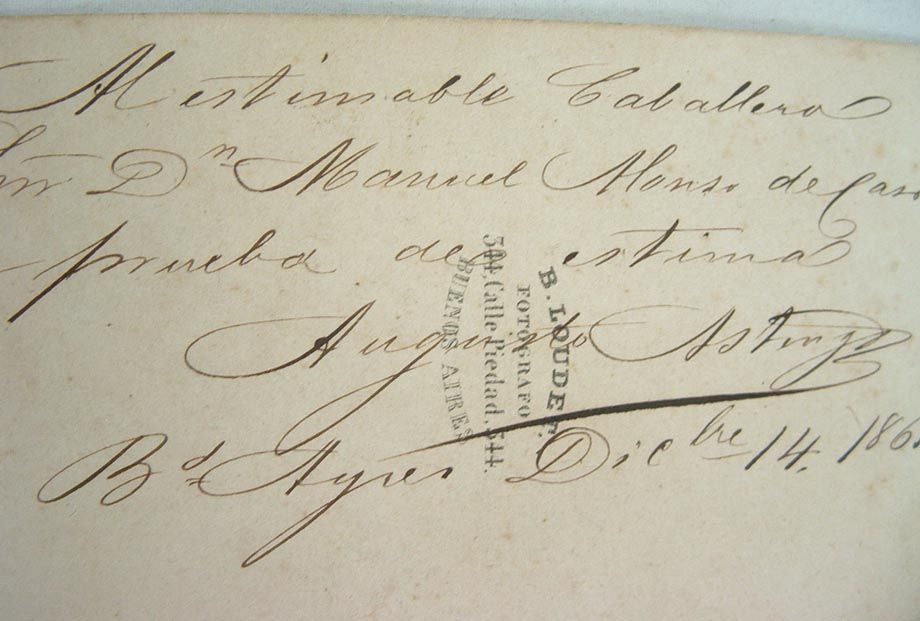 Al estimable Caballero
Dn Manuel Alonso de
prueba de estima
Augusto
Bs Ayres Dicbre 14, 186
B. LOUDET,
FOTOGRAFO
544, Calle Piedad, 544.
BUENOS AIRES